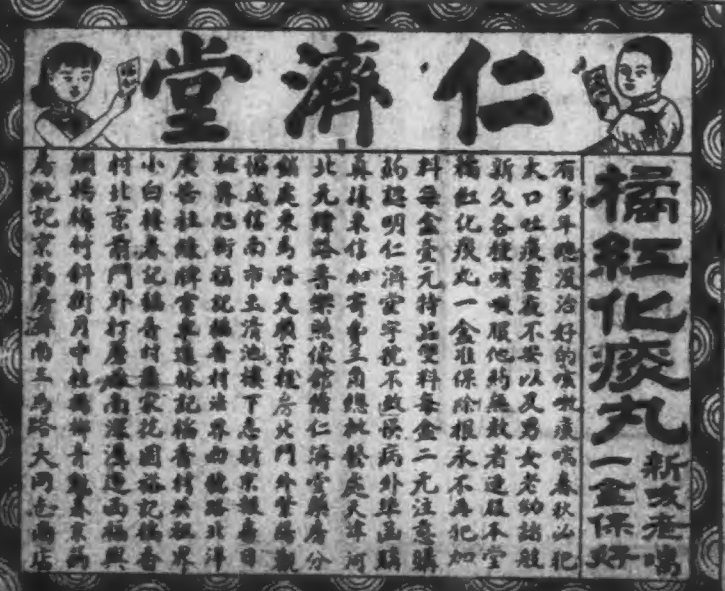 仁濟堂
橘紅化痰丸
新咳老喘
一盒保好
有多年總沒治好的咳嗽痰喘春秋必犯
大口吐痰晝夜不安以及男女老幼諸般
新久各種咳嗽服他藥無效者速服本堂
橘紅化痰丸一盒准保除根永不再犯加
料每盒壹元特品雙料每盒二元注意購
藥認明仁濟堂字號不致誤病外埠函購
真樓東信加寄費三角總批發處天津河
北元緯路壽樂照像館傍仁濟堂藥房分
售處東馬路大 京 房北門外
成信南市玉清池樓下
租界旭街福記稻香村法界 路北洋
廣告社綠牌電車道林記稻香村英租界
小白樓春記稻香村 家花園裕記稻香
村北京前門外打磨廠南深溝 西福興
楊梅竹斜街月中桂 京
房 記京 房濟南三馬路大同 店